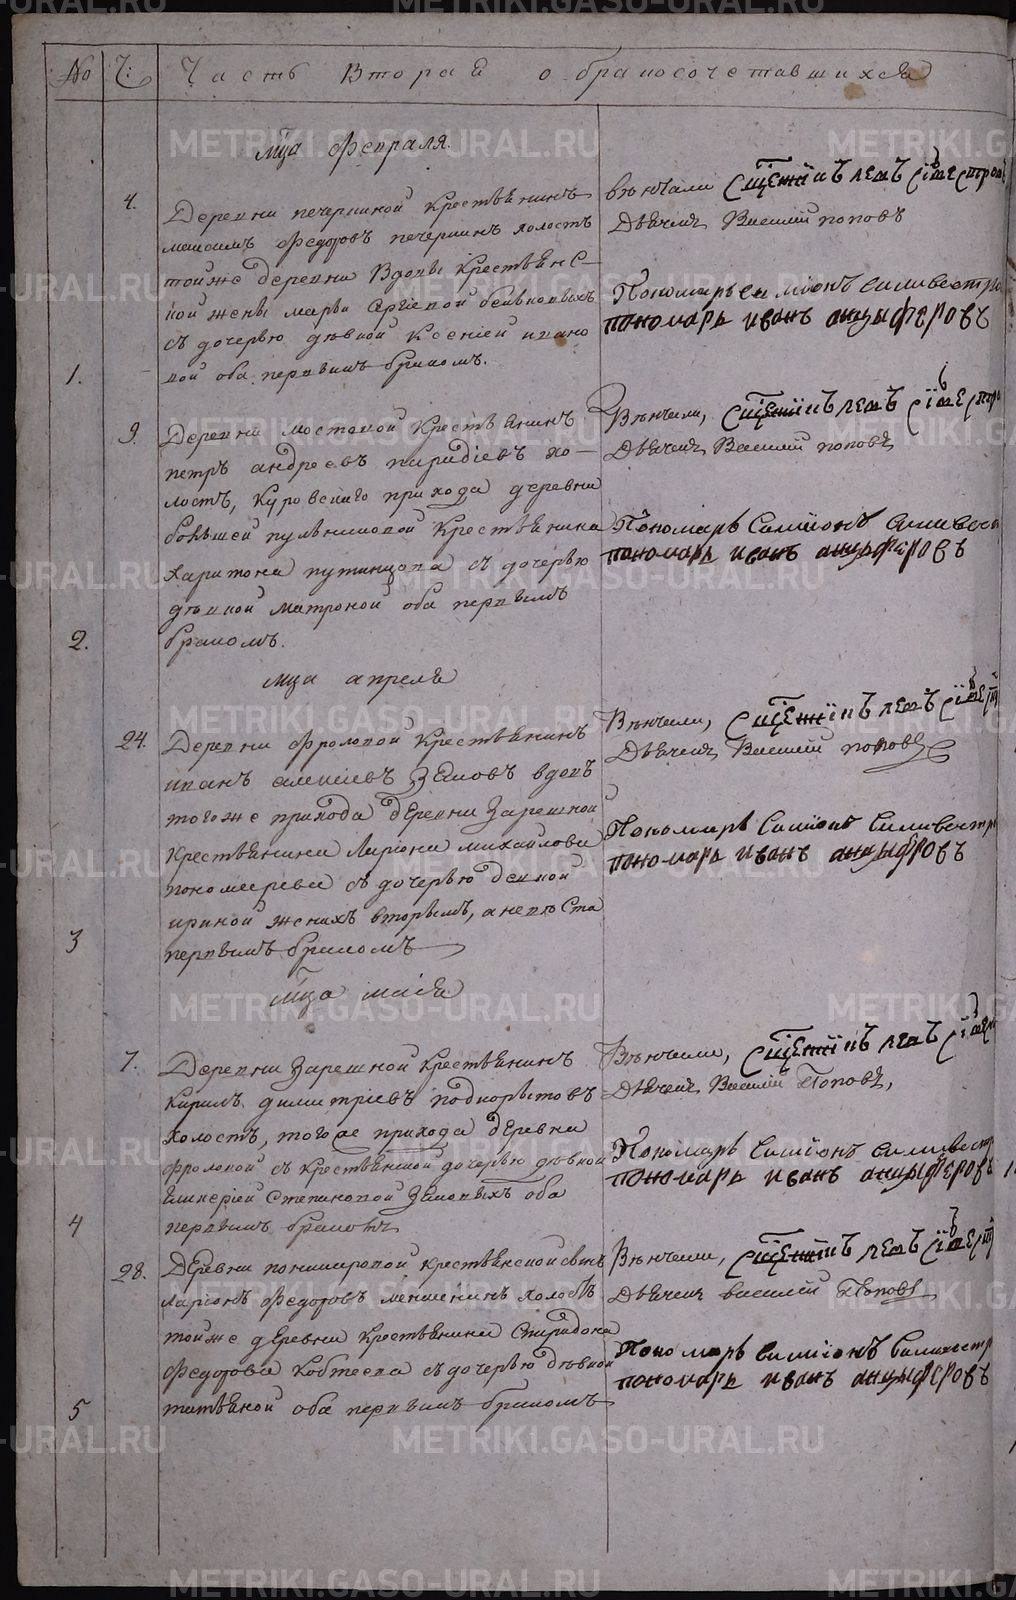 No Ч: Часть Вторая о бракосочетавшихся
мца Февраля.
4. Деревни печеркиной крестьянинъ
максимъ Федоровъ печеркинъ холостъ
тойже деревни вдовы крестьянс-
кой жены марьи сергѣевой
съ дочерью дѣвкой Ксенiей ивано
1. вой оба первымъ бракомъ.
вѣнчали священникъ левъ
Дьячекъ Василiй поповъ
Пономарь симiонъ силивестро
пономарь иванъ анцыферовъ
9. Деревни мостовой крестьянинъ
петръ андреевъ хо-
лостъ, Куровскаго прихода деревни
большей пульниковой крестьянина
Харитона путинцова съ дочерью
дѣвкой матроной оба первымъ
2. бракомъ.
Вѣнчали, священникъ левъ
Дьячекъ Василiй поповъ
Пономарь Симiонъ Силивест
пономарь иванъ анцыферовъ
мца апреля
24. Деревни фроловой крестьянинъ
иванъ алексiевъ Зыковъ вдовъ
тогоже прихода деревни Зарешной
крестьянина Ларiона михайлова
пономарева съ дочерью девкой
ириной женихъ вторымъ, а невѣста
3 первымъ бракомъ
Вѣнчали, священникъ левъ
Дьячекъ Василiй поповъ
Пономарь Симiонъ Силивестр
пономарь иванъ анцыфровъ
мца маiя
7. Деревни Зарешной крестьянинъ
Кирилъ димитрiевъ подкорытовъ
холостъ, тогоже прихода деревни
фроловой съ крестьянской дочерью дѣвкой
Степановой Зыковыхъ оба
4 первымъ бракомъ
Вѣнчали, священникъ левъ
Дьячекъ Василiй Поповъ,
Пономарь Симiонъ силивестр
пономарь иванъ анцыферовъ
28. Деревни крестьянской сынъ
ларiонъ Федоровъ меншенинъ холостъ
тойже деревни крестьянина Спиридона
Федорова Кобтева съ дочерью дѣвкой
5 татьяной оба первымъ бракомъ
Вѣнчали, священникъ левъ
Дьячекъ василiй Поповъ
Пономарь Симiонъ Силивестр
пономарь иванъ анцыферовъ
METRIKI.GASO-URAL.RU